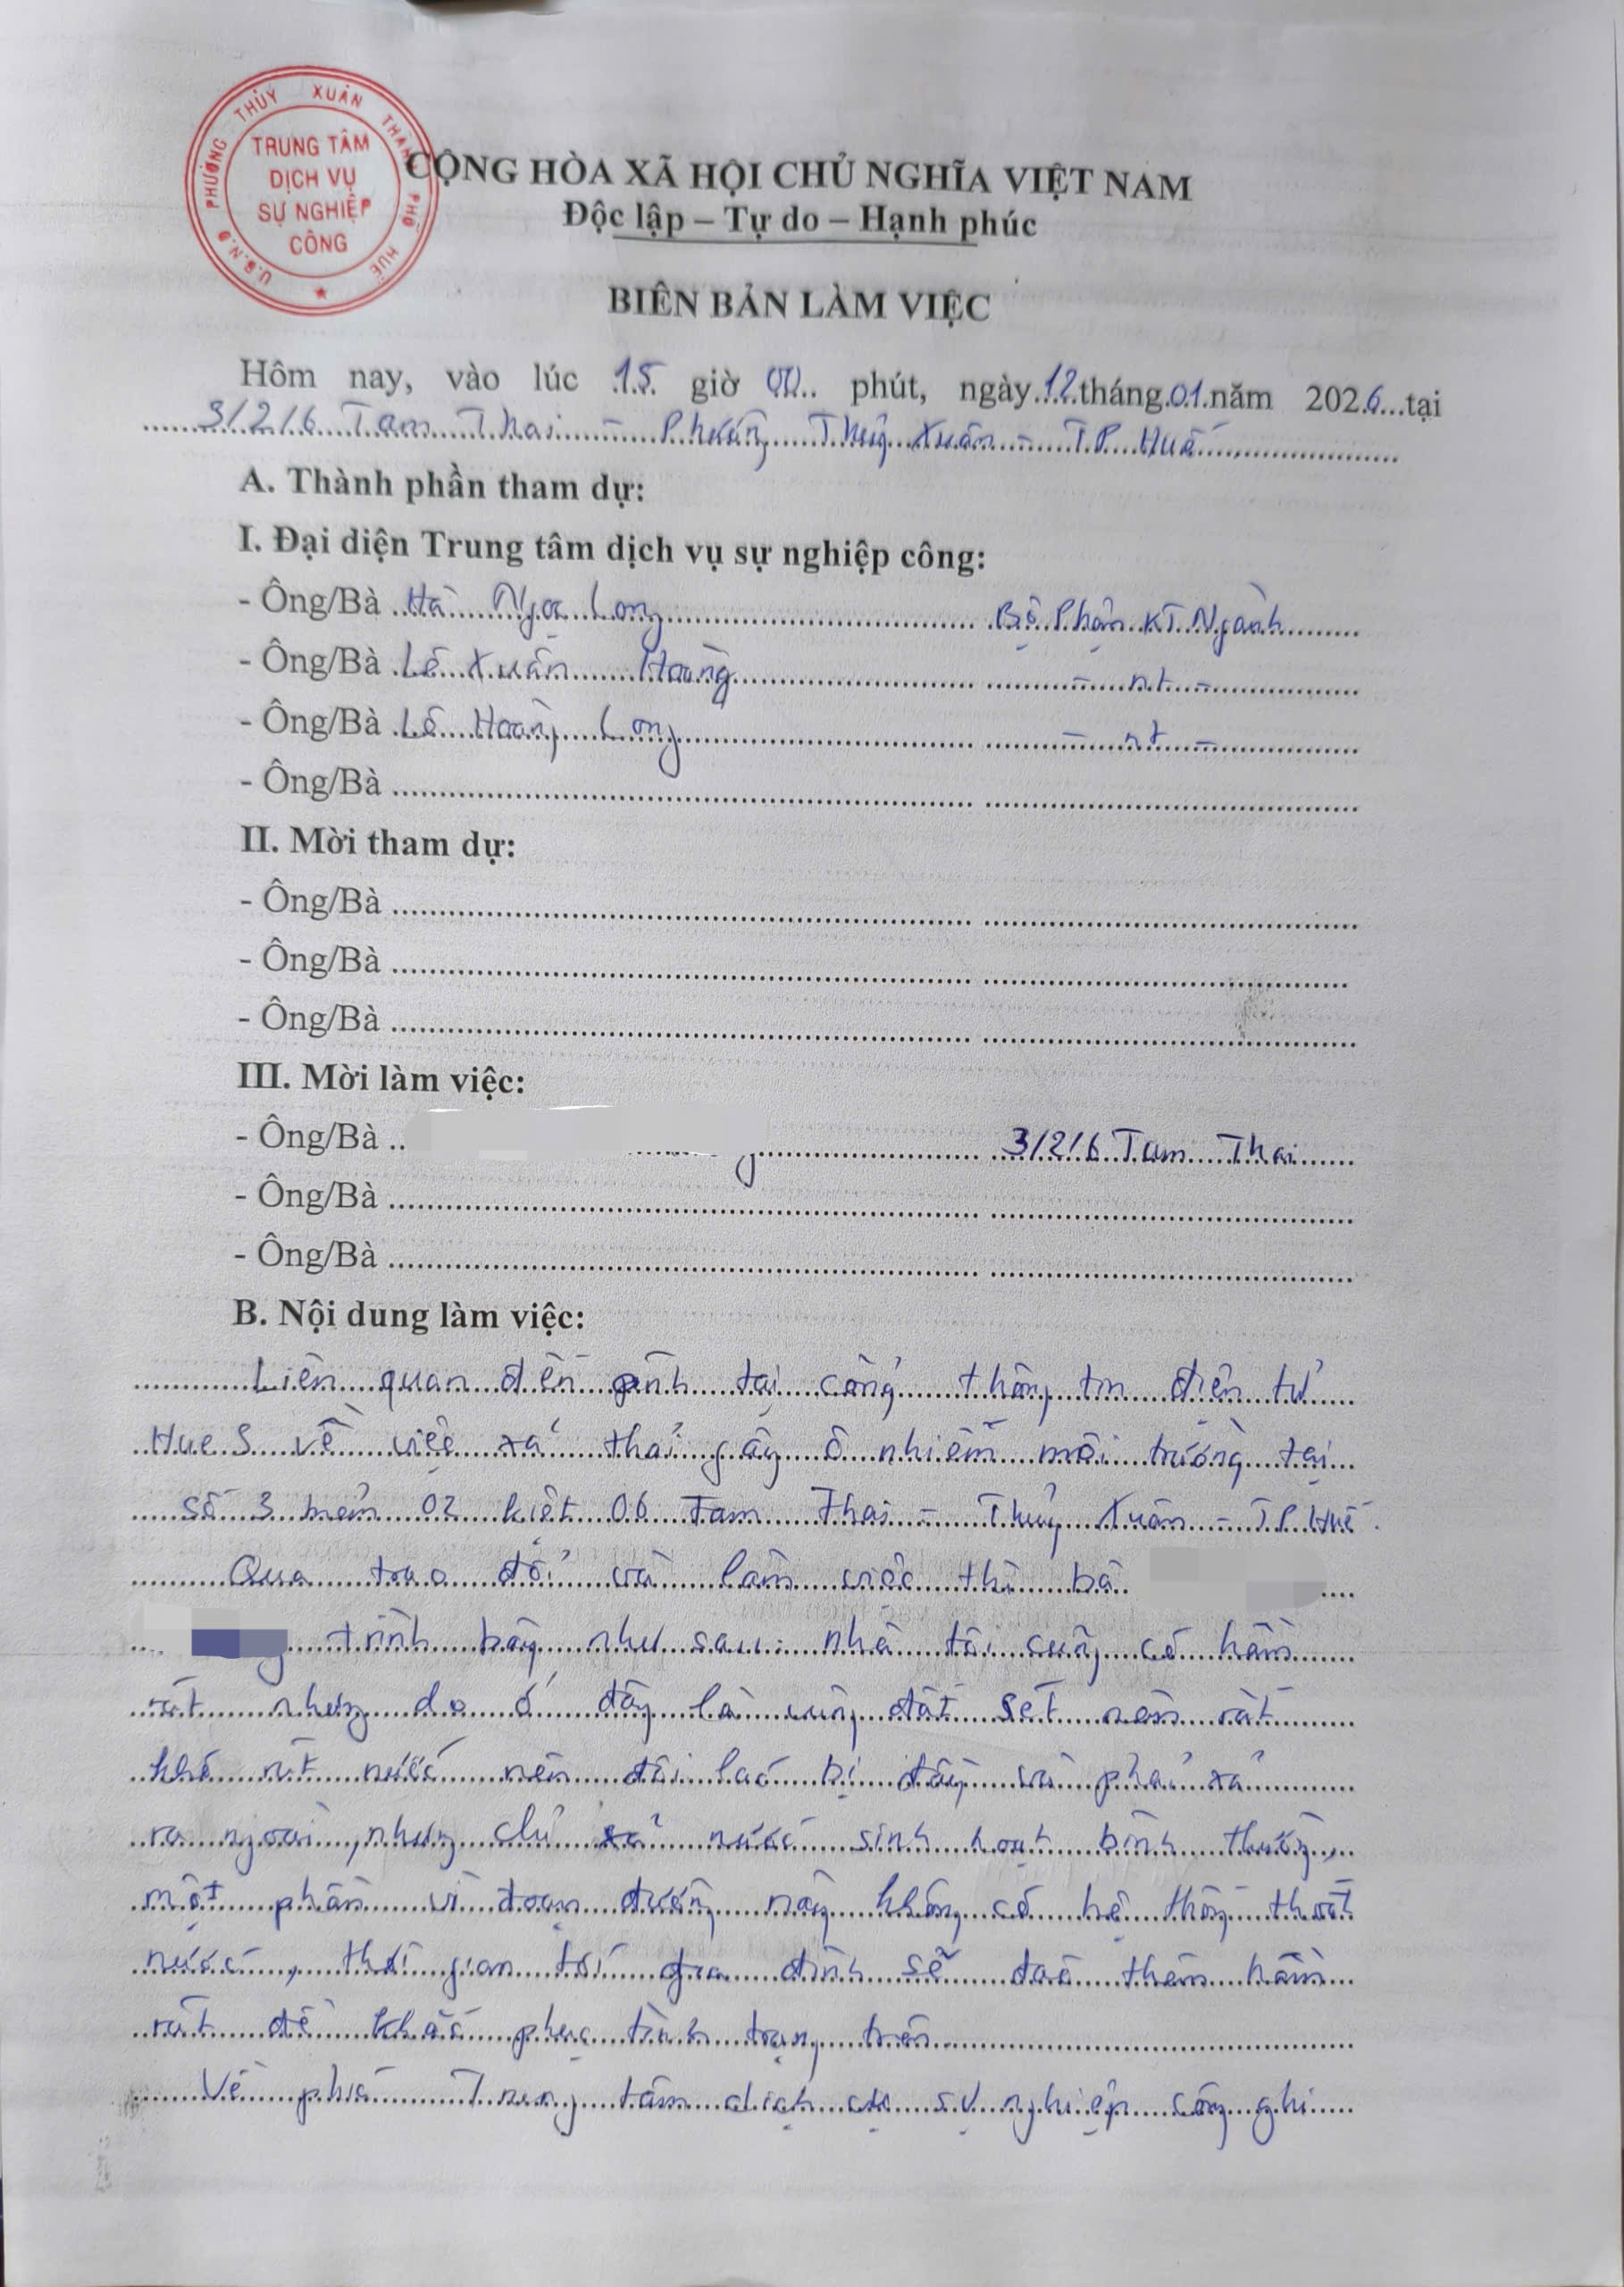 U.B.N.D PHƯỜNG THỦY XUÂN THÀNH PHỐ HUẾ
TRUNG TÂM
DỊCH VỤ
SỰ NGHIỆP
CÔNG
CỘNG HÒA XÃ HỘI CHỦ NGHĨA VIỆT NAM
Độc lập – Tự do – Hạnh phúc
BIÊN BẢN LÀM VIỆC
Hôm nay, vào lúc 15 giờ 00 phút, ngày 12 tháng 01 năm 2026 tại
3/2/6 Tam Thai - Phường Thủy Xuân - T.P Huế
A. Thành phần tham dự:
I. Đại diện Trung tâm dịch vụ sự nghiệp công:
- Ông/Bà Hà Ngọc Long Bộ Phận KT Ngành
- Ông/Bà Lê Xuân Hoàng - nt -
- Ông/Bà Lê Hoàng Long - nt -
- Ông/Bà
II. Mời tham dự:
- Ông/Bà
- Ông/Bà
- Ông/Bà
III. Mời làm việc:
- Ông/Bà 3/2/6 Tam Thai
- Ông/Bà
- Ông/Bà
B. Nội dung làm việc:
Liên quan đến tại cổng thông tin điện tử
Hue S về việc xả thải gây ô nhiễm môi trường tại
số 3 hẻm 02 kiệt 06 Tam Thai - Thủy Xuân - T.P Huế.
Qua trao đổi và làm việc thì bà
trình bày như sau: nhà tôi cũng có hầm
rút nhưng do ở đây là vùng đất sét nên rất
khó rút nước nên đôi lúc bị đầy và phải xả
ra ngoài, nhưng chỉ xả nước sinh hoạt bình thường,
một phần vì đoạn đường này không có hệ thống thoát
nước, thời gian tới gia đình sẽ đào thêm hầm
rút để khắc phục tình trạng trên
Về phía Trung tâm dịch vụ sự nghiệp công ghi